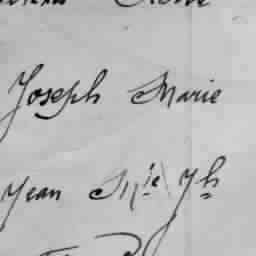 Joseph Marie
Jean M.ie Jh